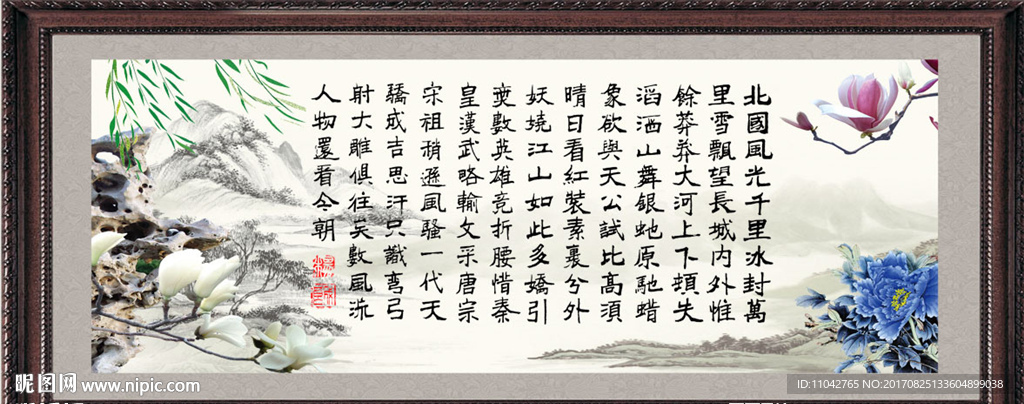 北國風光千里冰封萬
里雪飄望長城内外惟
餘莽莽大河上下頓失
滔滔山舞銀虵原馳蜡
象欲與天公試比高須
晴日看紅裝素裹分外
妖嬈江山如此多嬌引
無數英雄竞折腰惜秦
皇漢武略輸文采唐宗
宋祖稍遜風騷一代天
驕成吉思汗只識彎弓
射大雕俱往矣數風流
人物還看今朝
昵图网 www.nipic.com
ID:11042765 NO:20170825133604899038